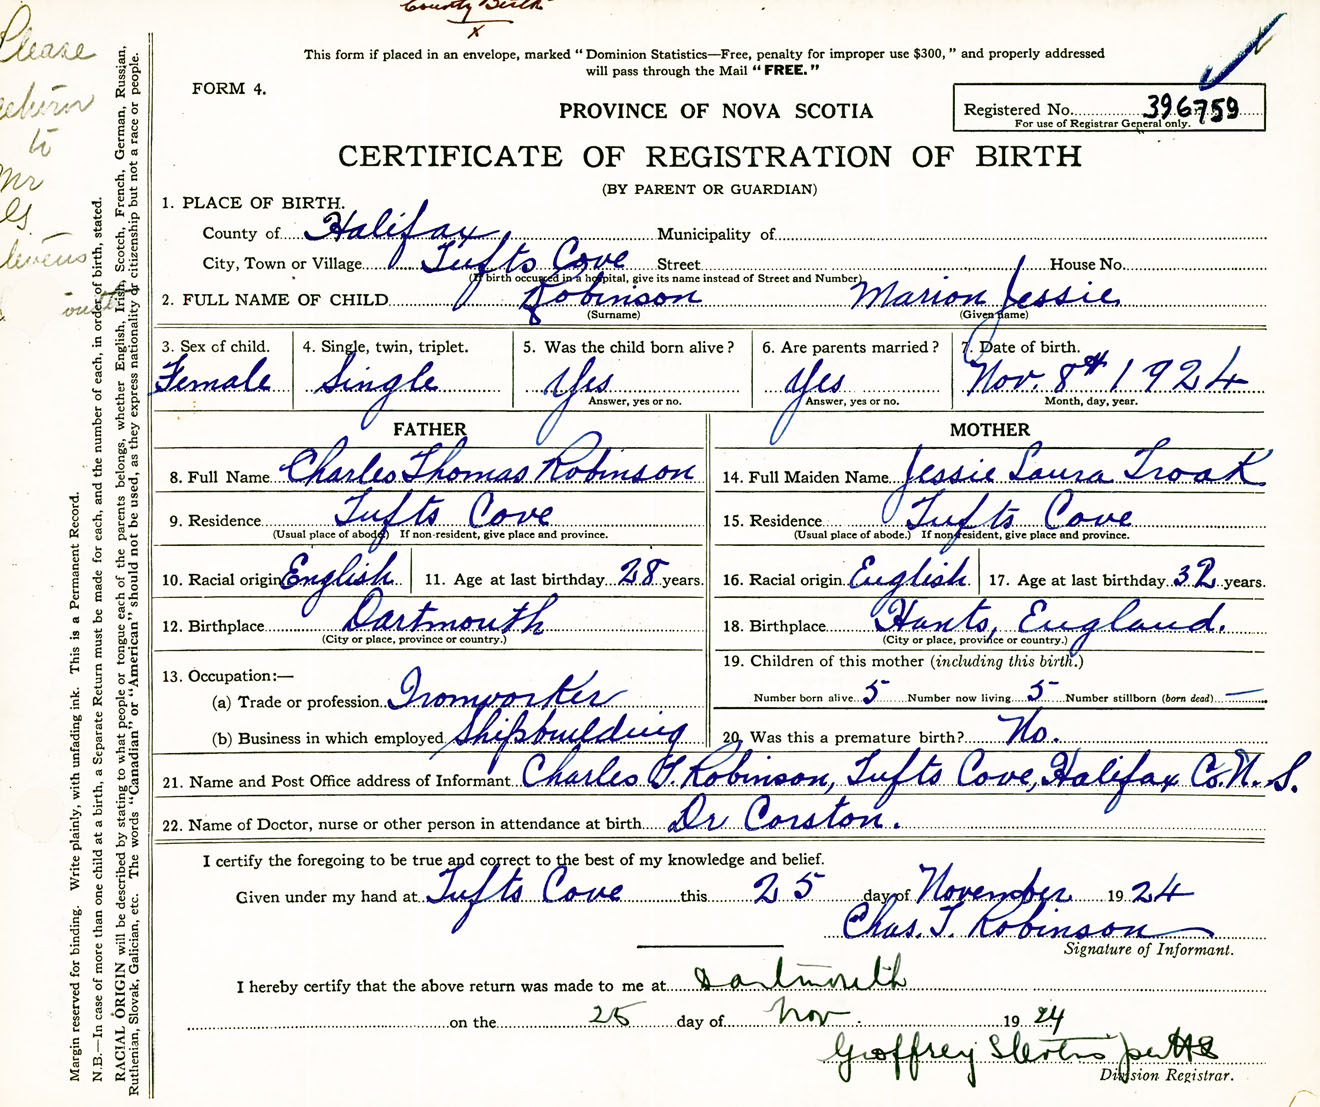 County Birth
x
This form if placed in an envelope, marked "Dominion Statistics—Free, penalty for improper use $300," and properly addressed
will pass through the Mail "FREE."
FORM 4.
PROVINCE OF NOVA SCOTIA
Registered No. 396759
For use of Registrar General only.
CERTIFICATE OF REGISTRATION OF BIRTH
(BY PARENT OR GUARDIAN)
1. PLACE OF BIRTH.
County of Halifax Municipality of
City, Town or Village Tufts Cove Street House No.
(If birth occurred in a hospital, give its name instead of Street and Number)
2. FULL NAME OF CHILD Robinson Marion Jessie
(Surname) (Given name)
3. Sex of child. 4. Single, twin, triplet. 5. Was the child born alive? 6. Are parents married? 7. Date of birth.
Female Single Yes Yes Nov. 8th 1924
Answer, yes or no. Answer, yes or no. Month, day, year.
FATHER MOTHER
8. Full Name Charles Thomas Robinson 14. Full Maiden Name Jessie Laura Troak
9. Residence Tufts Cove 15. Residence Tufts Cove
(Usual place of abode) If non-resident, give place and province. (Usual place of abode.) If non-resident, give place and province.
10. Racial origin English 11. Age at last birthday 28 years. 16. Racial origin English 17. Age at last birthday 32 years.
12. Birthplace Dartmouth 18. Birthplace Hants, England.
(City or place, province or country.) (City or place, province or country.)
13. Occupation:— 19. Children of this mother (including this birth.)
(a) Trade or profession Ironworker Number born alive 5 Number now living 5 Number stillborn (born dead) —
(b) Business in which employed Shipbuilding 20. Was this a premature birth? No.
21. Name and Post Office address of Informant Charles T. Robinson, Tufts Cove, Halifax Co. N. S.
22. Name of Doctor, nurse or other person in attendance at birth Dr Corston.
I certify the foregoing to be true and correct to the best of my knowledge and belief.
Given under my hand at Tufts Cove this 25 day of November 1924
Chas. T. Robinson
Signature of Informant.
I hereby certify that the above return was made to me at Dartmouth
on the 25 day of Nov 1924
Geoffrey Stevens per HS
Division Registrar.
Please
return
to
Mr
G.
Stevens
Margin reserved for binding. Write plainly, with unfading ink. This is a Permanent Record.
N.B.—In case of more than one child at a birth, a Separate Return must be made for each, and the number of each, in order of birth, stated.
RACIAL ORIGIN will be described by stating to what people or tongue each of the parents belongs, whether English, Irish, Scotch, French, German, Russian,
Ruthenian, Slovak, Galician, etc. The words "Canadian" or "American" should not be used, as they express nationality or citizenship but not a race or people.